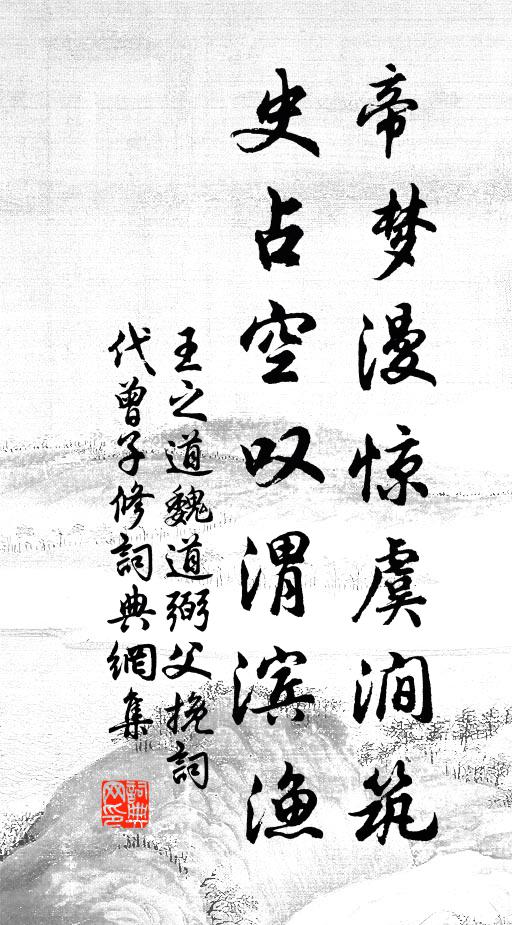 帝梦漫惊虞涧筑
史占空叹渭滨渔
王之道魏道弼父挽詞
代曾子修詞典網集
詞典网印